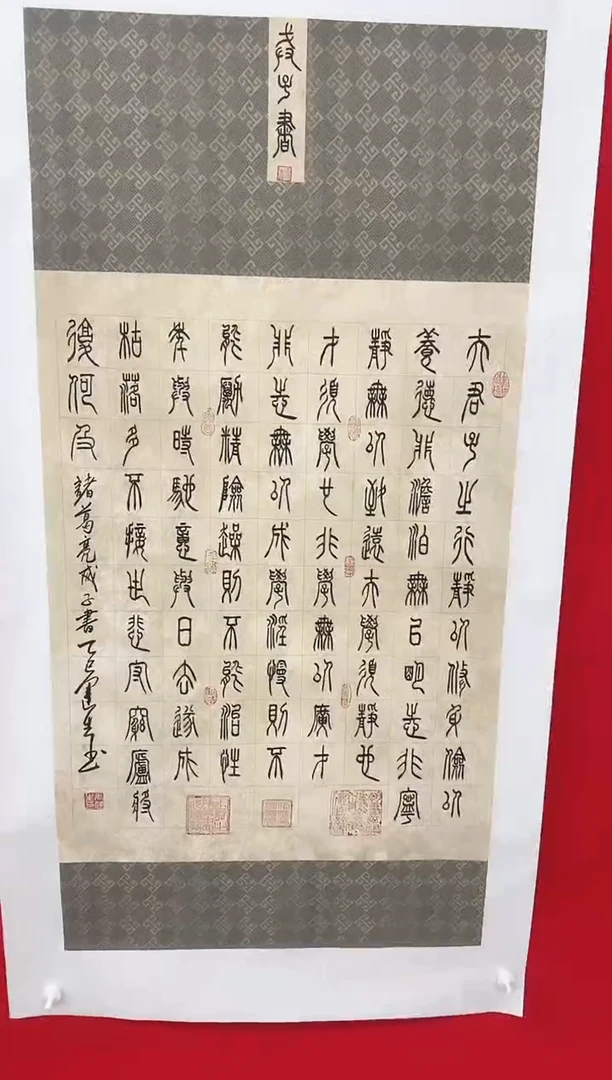 戒子書
夫君子之行靜以修身儉以
養德非澹泊無以明志非寧
靜無以致遠夫學須靜也
才須學也非學無以廣才
非志無以成學淫慢則不
能勵精險躁則不能治性
年與時馳意與日去遂成
枯落多不接世悲守窮廬將
復何及
諸葛亮戒子書乙巳